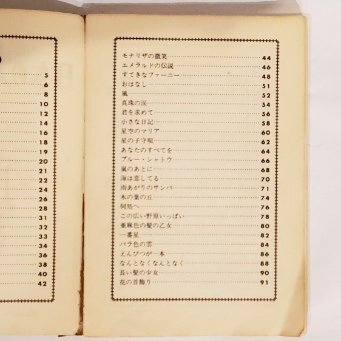 5
6
8
10
12
14
15
16
18
19
20
22
24
26
28
31
32
33
34
36
38
40
42
モナリザの微笑 44
エメラルドの伝説 46
すてきなファーニー 48
おはなし 51
風 52
真珠の涙 54
君を求めて 56
小さな日記 58
星空のマリア 60
星の子守唄 62
あなたのすべてを 64
ブルー・シャトウ 66
風のあとに 68
海は恋してる 70
雨あがりのサンバ 71
木の葉の丘 74
何処へ 76
この広い野原いっぱい 78
亜麻色の髪の乙女 80
一番星 82
バラ色の雲 84
えんぴつが一本 86
なんとなくなんとなく 88
長い髪の少女 90
花の首飾り 91